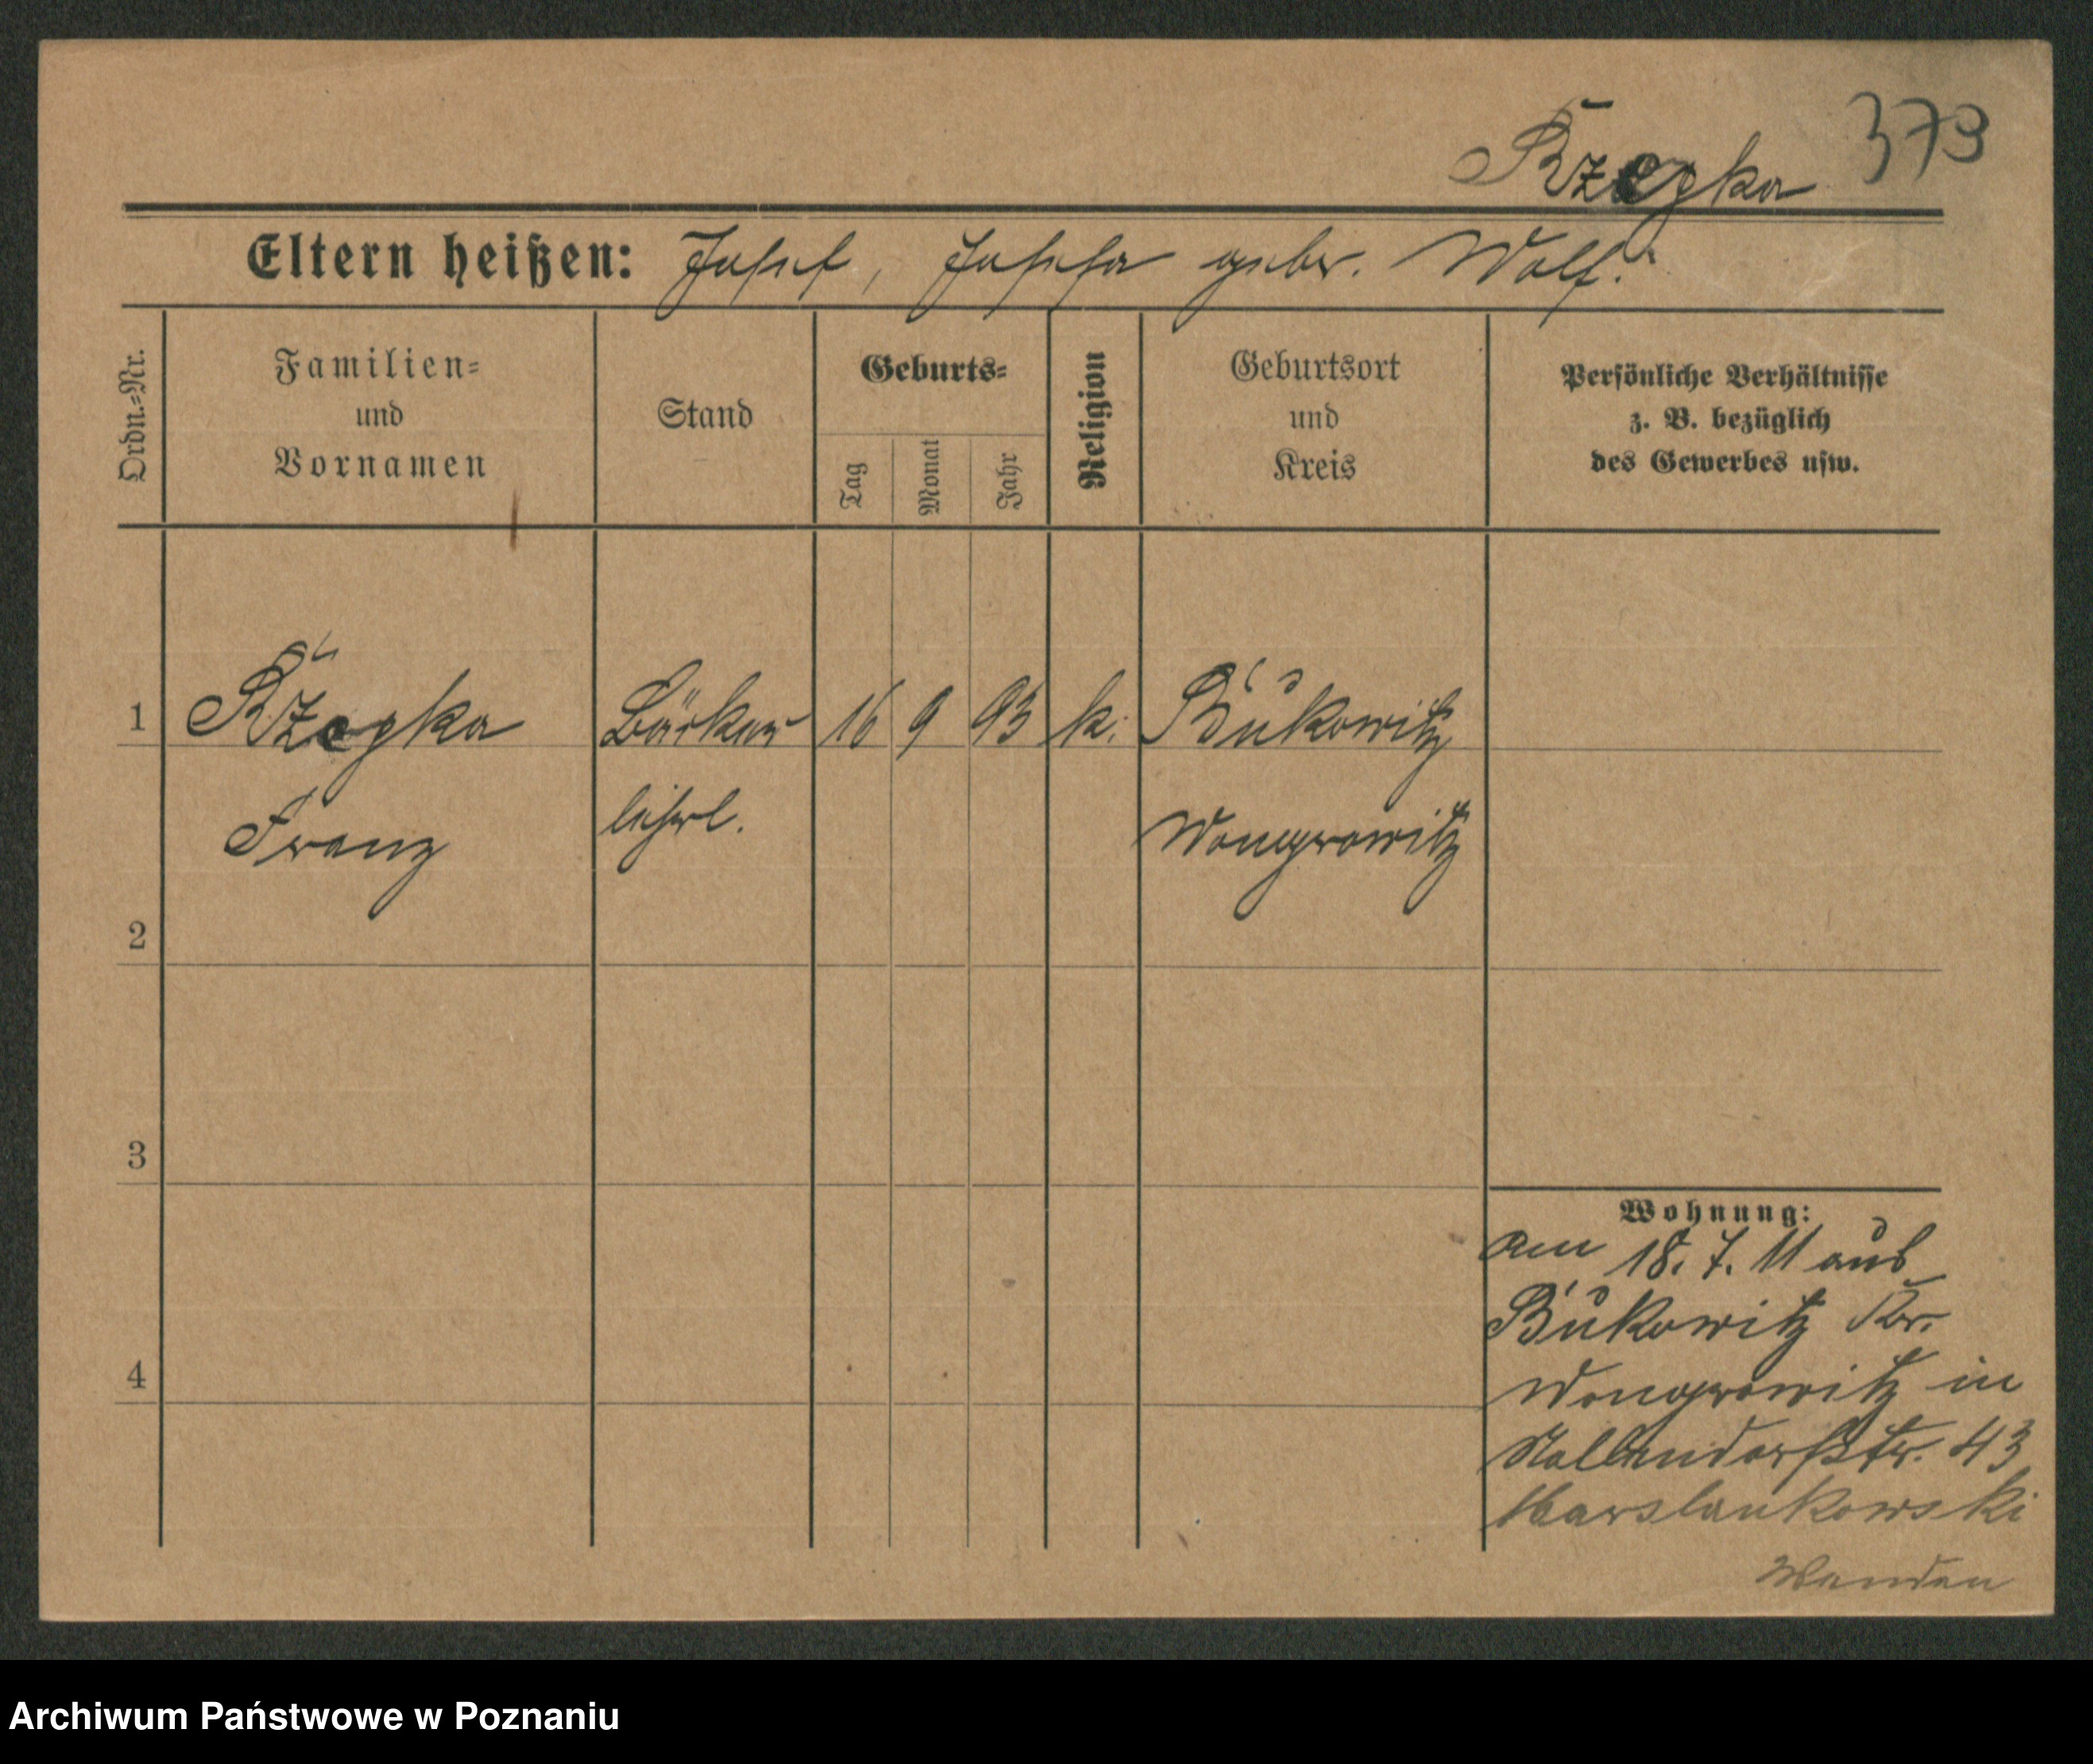 Rzepka 373
Eltern heißen: Josef, Josefa gebor. Wolf.
Ordn.=Nr.
Familien=
und
Vornamen
Stand
Geburts=
Tag
Monat
Jahr
Religion
Geburtsort
und
Kreis
Persönliche Verhältnisse
z. B. bezüglich
des Gewerbes usw.
1 Rzepka Bäcker 16 9 93 k. Bukowitz
Franz lehrl. Wongrowitz
2
3
Wohnung:
am 18. 7. 11 aus
Bukowitz Kr.
4
Wongrowitz in
Nollendorfstr. 43
Archiwum Państwowe w Poznaniu